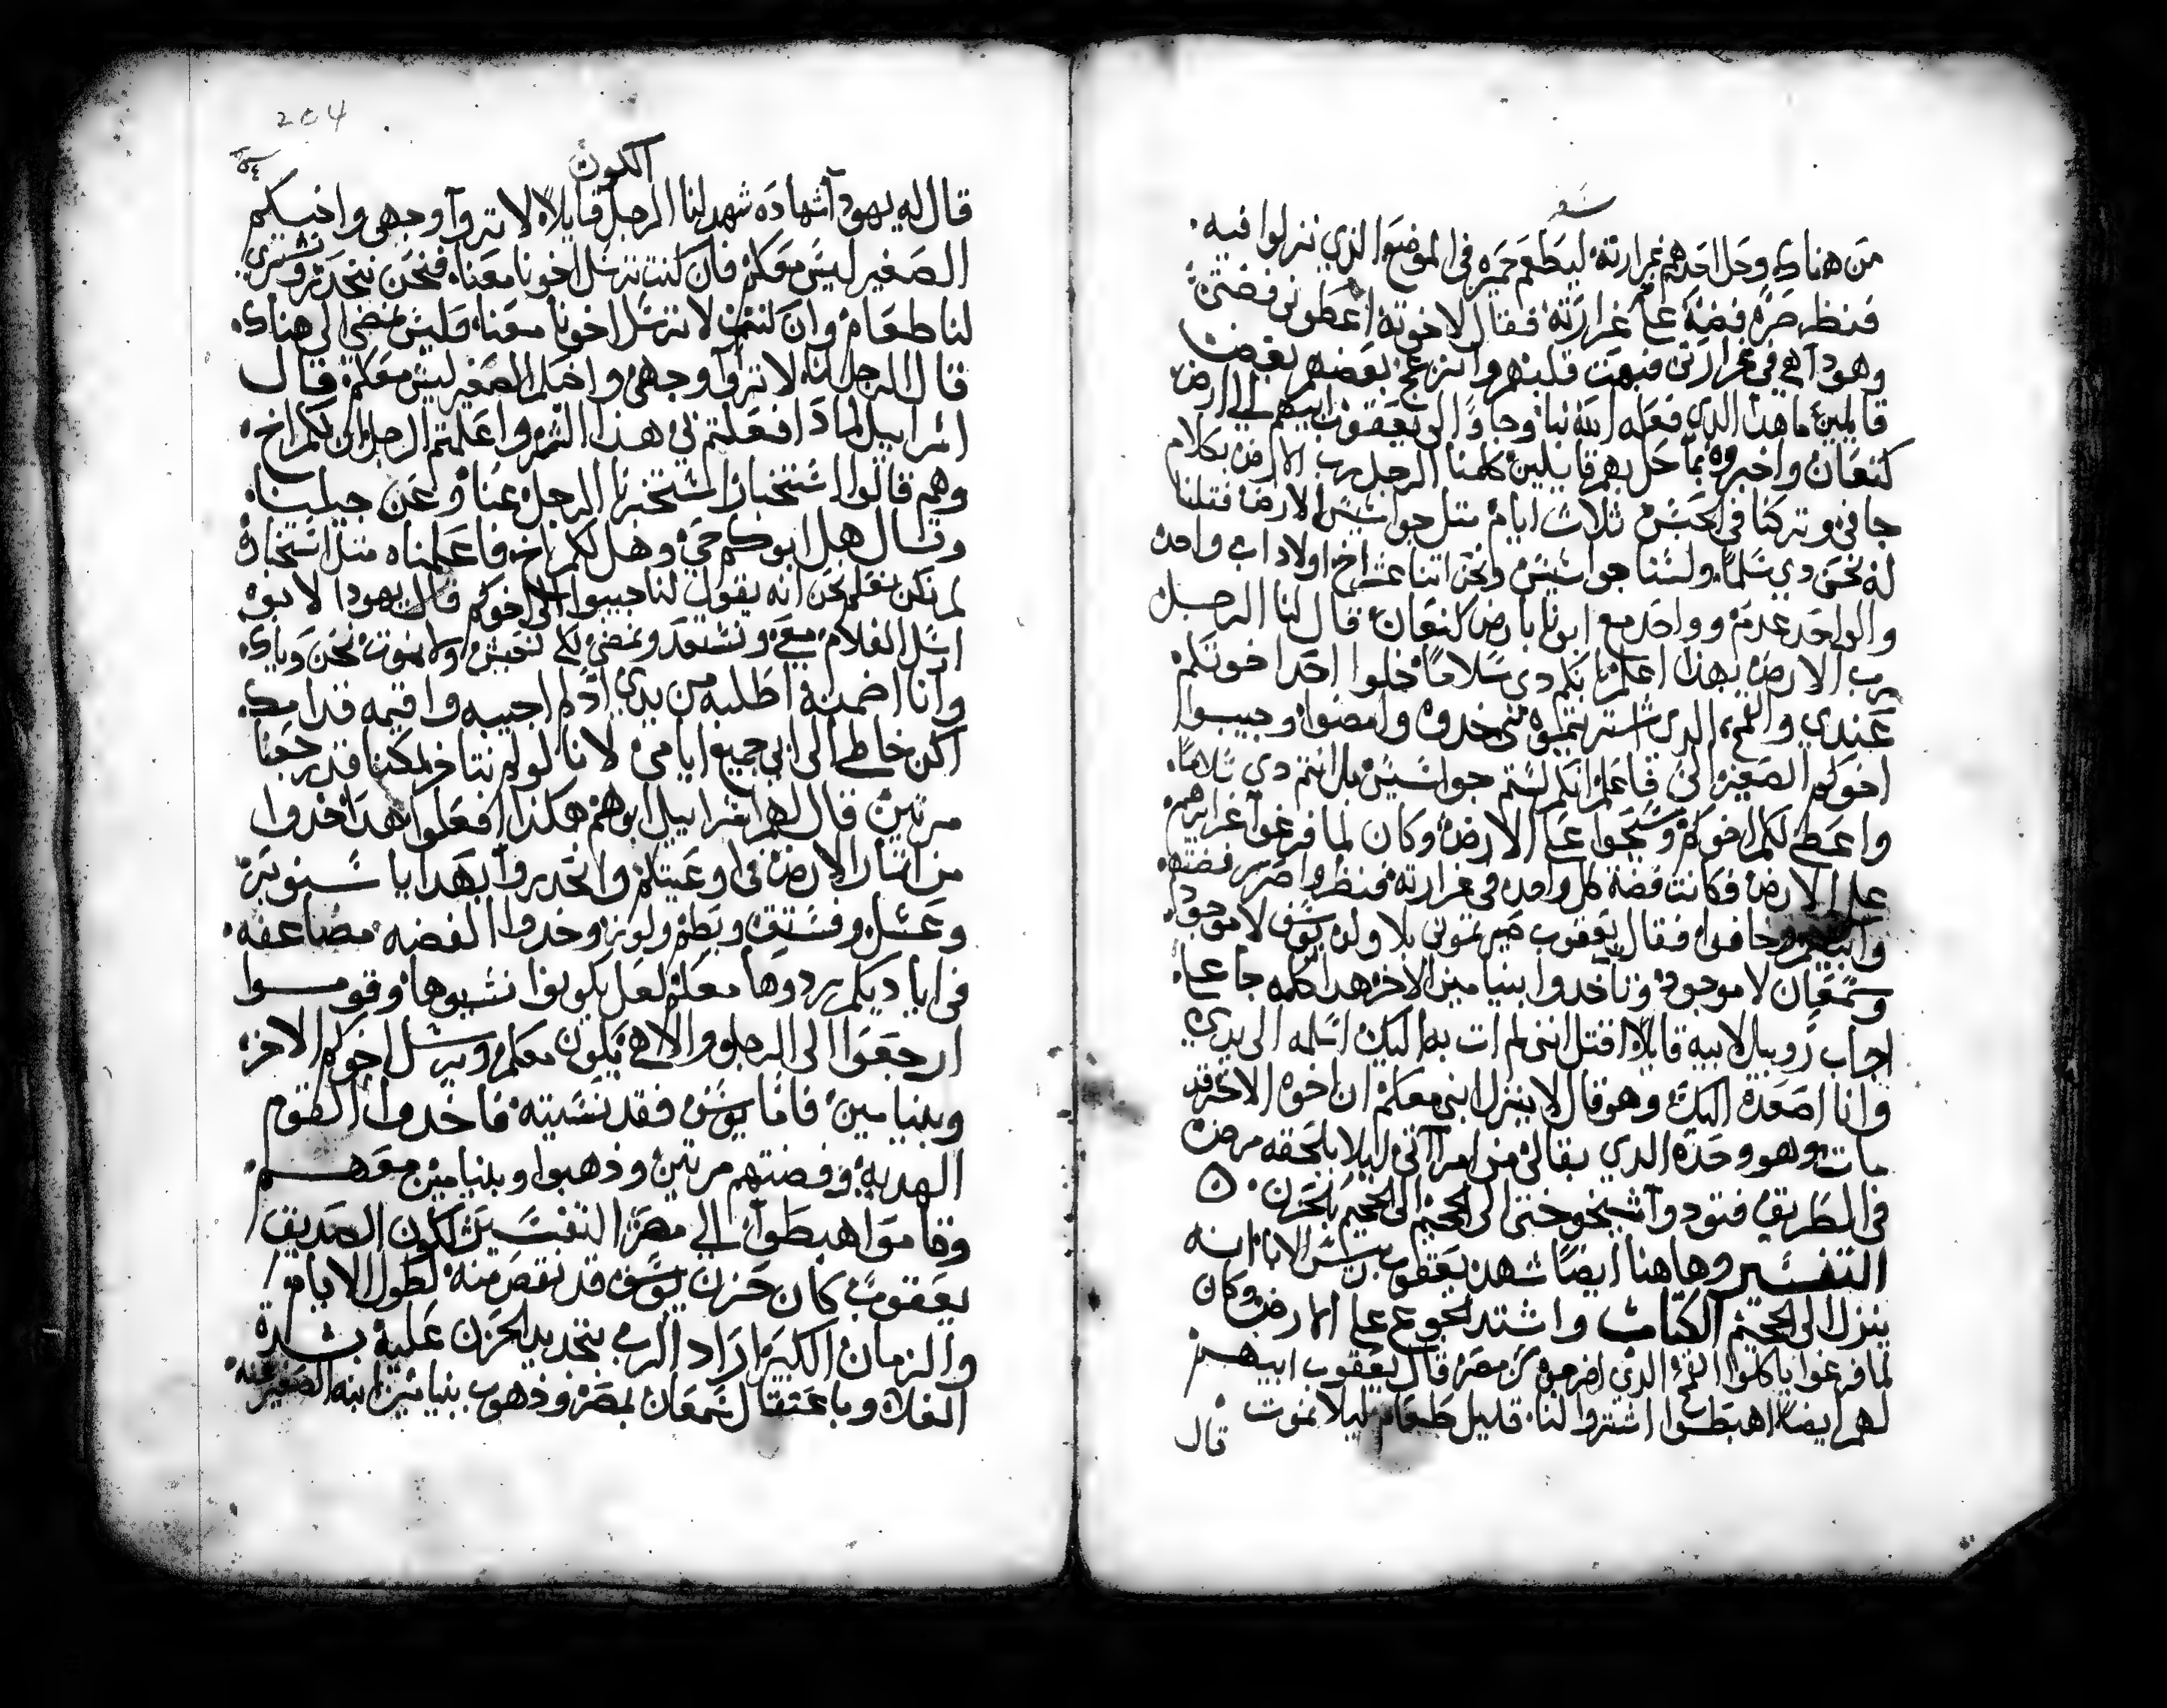 سفر
من هناك وحل احدهم غرارته ليطعم حميره في الموضع الذي نزلوا فيه
فنظر صرة فضة على غرارته فقال لاخوته اعطوني فضتي
وهودا هي في غرارتي فبهت قلبهم وانزعج بعضهم بعض
قايلين ما هذا الذي فعله الله بنا وجاوا الى يعقوب ابيهم الى ارض
كنعان واخبروه بما حل بهم قايلين كلمنا الرجل رب الارض بكلام
جافي وتركنا في الحبس ثلاث ايام مثل جواسيس الارض فقلنا
له نحن دي سلما ولسنا جواسيس ونحن اتنا عشر اخ اولاد اب واحد
والواحد عدم وواحد مع ابونا بارض كنعان قال لنا الرجل
رب الارض بهذا اعلم انكم دي سلاما خلوا احد اخوتكم
عندي والقمح الذي اشتريتموه خدوه وامضوا وجيبوا
اخوكم الصغير الي فاعلم انكم لستم جواسيس بل انتم دي سلاما
واعطى لكم اخوكم وتتجوا على الارض وكان لما فرغوا غرايرهم
على الارض فكانت فضة كل واحد في غرارته فنظروا صرر فضتهم
وابيهم وخافوا فقال يعقوب صيرتموني بلا ولد يوسف لا موجود
وسمعان لا موجود وتاخدوا بنيامين الاخر هدا كله جا علي
اجاب روبيل لابيه قايلا اقتل ابني لم ات به اليك اسلمه الى يدي
وانا اصعده اليك وهو قال لا ينزل ابني معكم ان اخوه الاخر قد
مات وهو وحده الدي بقا لي من امراتي ليلا يلحقه مرض
في الطريق فتودوا شيخوختي الى الجحيم بحزن
التفسير وهاهنا ايضا شهد يعقوب ريس الابا انه
ينزل الى الجحيم الكتاب واشتد الجوع على الارض وكان
لما فرغوا ياكلوا القمح الدي احضروه من مصر قال يعقوب ابيهم
لهم ايضا اهبطوا اشتروا لنا قليل طعام ليلا نموت
قال
204
الكون
قال له يهودا شهاده شهد لنا الرجل قايلا لا تروا وجهي واخيكم
الصغير ليس معكم فان كنت ترسل اخونا معنا فنحن ننحدر ونشتري
لنا طعام وان كنتم لا ترسل اخونا معنا فليس نمضي الى هناك
قال الرجل لنا لا تروا وجهي واخيكم الصغير ليس معكم قال
اسراييل لمادا فعلتم بي هذا الشر واعلمتم الرجل ان لكم اخ
وهم قالوا استخبارا استخبرنا الرجل عنا وعن جيلنا
وقال هل ابوكم حي وهل لكم اخ فاعلمناه مثل استخباره
لم نكن نعلم نحن انه يقول لنا جيبوا الي اخوكم قال يهودا لابوه
ارسل الغلام معي ونستعد ونمضي لكي نعيش ولا نموت نحن وياك
وانا اضمنه اطلبه من يدي اذ لم اجيبه واقيمه قدامك
اكن خاطي الى ابي جميع ايامي لانا لو لم نتاخر لكنا قد رجعنا
مرتين قال لهم اسراييل ابوهم هكذا افعلوا هدا خدوا
من اتمار الارض في اوعيتكم وانحدروا بهدايا سنوبر
وعسل وفستق وبطم ولوز وخدوا الفضه مضاعفه
في اياديكم ردوها معكم لعل يكونوا نسيوها وقوموا
ارجعوا الى الرجل والاهي يكون معكم ويرسل اخوكم الاخر
وبنيامين فاما يوسف فقد نسيته فاخدوا القوم
الهديه وفضتهم مرتين وذهبوا وبنيامين معهم
وقاموا هبطوا الى مصر التفسير لكون الصديق
يعقوب كان حزن يوسف قد نقص منه لطول الايام
والزمان الكبير اراد الرب بتجديد الحزن عليه بشدة
الغلا وباعتقال سمعان بمصر وذهوب بنيامين ابنه الصغير عنه